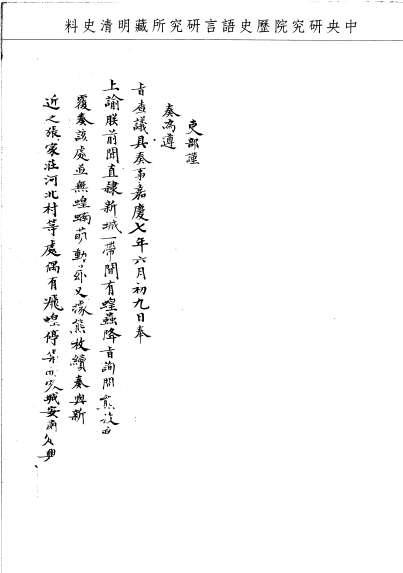 中央研究院歷史語言研究所藏明清史料
吏部謹
奏為遵
旨查議具奏事嘉慶七年六月初九日奉
上諭朕前聞直隸新城一帶間有蝗蟲降旨詢問熊枚
覆奏該處並無蝗蝻萌動
又據熊枚續奏與新
近之張家莊河北村等處偶有飛蝗停落
城安肅